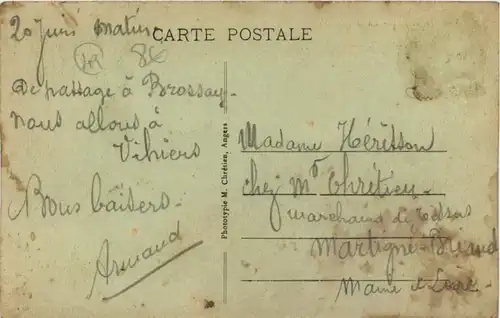 CARTE POSTALE
20 Juin matin
8€
De passage à Brossay.
nous allons à
Vihiers
Bons baisers.
Armand
Phototypie M. Chrétien, Angers
Madame Hérisson
chez Mr Chrétien
marchand de tissus
Martigné-Briand
Maine et Loire